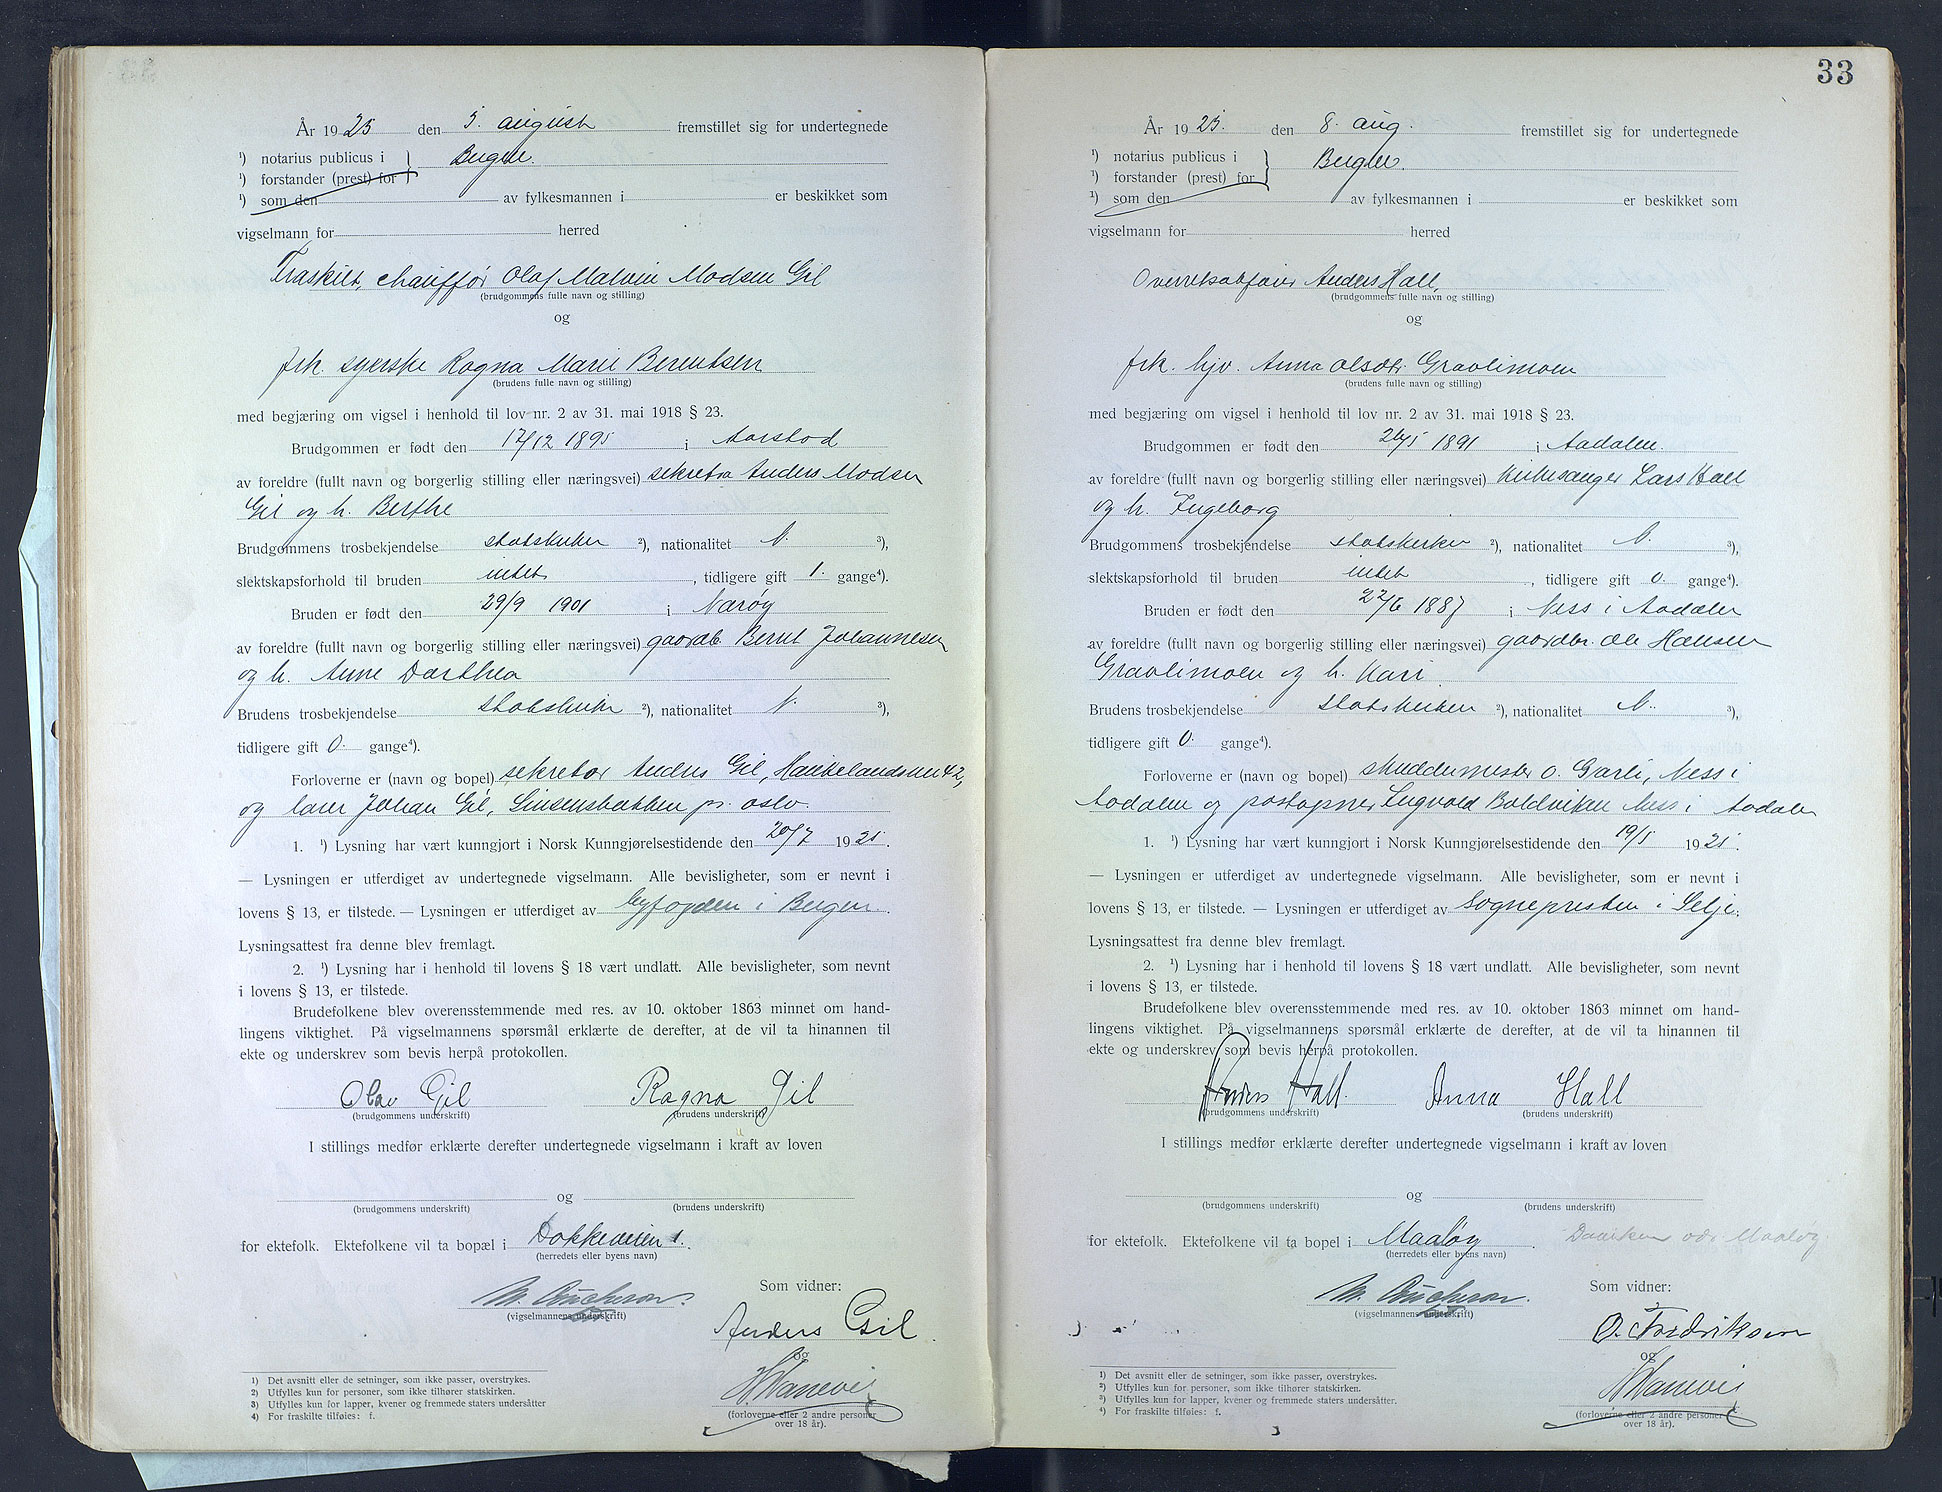 År 1925 den 5. august fremstillet sig for undertegnede
¹) notarius publicus i } Bergen.
¹) forstander (prest) for
¹) som den av fylkesmannen i er beskikket som
vigselmann for herred
Fraskilt, chauffør Olaf Malvin Madsen Gil
(brudgommens fulle navn og stilling)
og
frk. syerske Ragna Marie Berentsen
(brudens fulle navn og stilling)
med begjæring om vigsel i henhold til lov nr. 2 av 31. mai 1918 § 23.
Brudgommen er født den 17/12 1895 i Aarstad
av foreldre (fullt navn og borgerlig stilling eller næringsvei) sekretær Anders Madsen
Gil og h. Berthe
Brudgommens trosbekjendelse statskirken ²), nationalitet N. ³),
slektskapsforhold til bruden intet, tidligere gift 1. gange⁴).
Bruden er født den 29/9 1901 i Nærøy
av foreldre (fullt navn og borgerlig stilling eller næringsvei) gaardb. Bernt Johannesen
og h. Anne Darthea
Brudens trosbekjendelse statskirken ²), nationalitet N. ³),
tidligere gift 0. gange⁴).
Forloverne er (navn og bopel) sekretær Anders Gil, Haukelandsvn 42,
og Johan Gil, Sinsensbakken pr. Oslo.
1. ¹) Lysning har vært kunngjort i Norsk Kunngjørelsestidende den 20/7 1925.
— Lysningen er utferdiget av undertegnede vigselmann. Alle bevisligheter, som er nevnt i
lovens § 13, er tilstede. — Lysningen er utferdiget av byfogden i Bergen.
Lysningsattest fra denne blev fremlagt.
2. ¹) Lysning har i henhold til lovens § 18 vært undlatt. Alle bevisligheter, som nevnt
i lovens § 13, er tilstede.
Brudefolkene blev overensstemmende med res. av 10. oktober 1863 minnet om hand-
lingens viktighet. På vigselmannens spørsmål erklærte de derefter, at de vil ta hinannen til
ekte og underskrev som bevis herpå protokollen.
Olav Gil Ragna Gil
(brudgommens underskrift) (brudens underskrift)
I stillings medfør erklærte derefter undertegnede vigselmann i kraft av loven
og
(brudgommens underskrift) (brudens underskrift)
for ektefolk. Ektefolkene vil ta bopæl i Dokkeveien 1.
(herredets eller byens navn)
Som vidner:
(vigselmannens underskrift)
Anders Gil
og
(forloverne eller 2 andre personer
over 18 år).
1) Det avsnitt eller de setninger, som ikke passer, overstrykes.
2) Utfylles kun for personer, som ikke tilhører statskirken.
3) Utfylles kun for lapper, kvener og fremmede staters undersåtter
4) For fraskilte tilføies: f.
33
År 1925. den 8. aug. fremstillet sig for undertegnede
¹) notarius publicus i } Bergen.
¹) forstander (prest) for
¹) som den av fylkesmannen i er beskikket som
vigselmann for herred
Overretssakfører Anders Hall,
(brudgommens fulle navn og stilling)
og
frk. hjv. Anna Olsdtr. Gravlimoen
(brudens fulle navn og stilling)
med begjæring om vigsel i henhold til lov nr. 2 av 31. mai 1918 § 23.
Brudgommen er født den 26/5 1891 i Aadalen.
av foreldre (fullt navn og borgerlig stilling eller næringsvei) kirkesanger Lars Hall
og h. Ingeborg
Brudgommens trosbekjendelse statskirken ²), nationalitet N. ³),
slektskapsforhold til bruden intet, tidligere gift 0. gange⁴).
Bruden er født den 22/6 1887 i Ness i Aadalen
av foreldre (fullt navn og borgerlig stilling eller næringsvei) gaardbr. Ole Hansen
Gravlimoen og h. Kari
Brudens trosbekjendelse statskirken ²), nationalitet N. ³),
tidligere gift 0. gange⁴).
Forloverne er (navn og bopel) skuddermester O. Garli, Ness i
Aadalen og postaapner Boldvikan Ness i Aadalen
1. ¹) Lysning har vært kunngjort i Norsk Kunngjørelsestidende den 19/5 1925.
— Lysningen er utferdiget av undertegnede vigselmann. Alle bevisligheter, som er nevnt i
lovens § 13, er tilstede. — Lysningen er utferdiget av Sognepresten i Selje.
Lysningsattest fra denne blev fremlagt.
2. ¹) Lysning har i henhold til lovens § 18 vært undlatt. Alle bevisligheter, som nevnt
i lovens § 13, er tilstede.
Brudefolkene blev overensstemmende med res. av 10. oktober 1863 minnet om hand-
lingens viktighet. På vigselmannens spørsmål erklærte de derefter, at de vil ta hinannen til
ekte og underskrev som bevis herpå protokollen.
Anders Hall. Anna Hall
(brudgommens underskrift) (brudens underskrift)
I stillings medfør erklærte derefter undertegnede vigselmann i kraft av loven
og
(brudgommens underskrift) (brudens underskrift)
for ektefolk. Ektefolkene vil ta bopel i Maaløy. Maaløy
(herredets eller byens navn)
Som vidner:
(vigselmannens underskrift)
O. Fredriksen
og
(forloverne eller 2 andre personer
over 18 år).
1) Det avsnitt eller de setninger, som ikke passer, overstrykes.
2) Utfylles kun for personer, som ikke tilhører statskirken.
3) Utfylles kun for lapper, kvener og fremmede staters undersåtter.
4) For fraskilte tilføies: f.